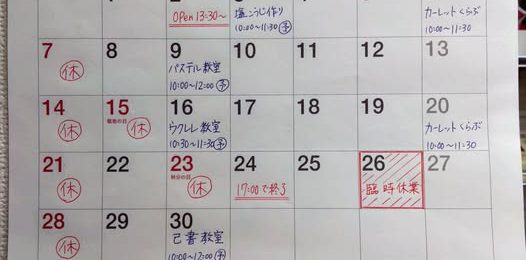 1 2 3 4 5 6
OPEN 13:30〜
塩こうじ作り
10:00〜11:30 予
カーレットくらぶ
10:00〜11:30
7 8 9 10 11 12 13
休
パステル教室
10:00〜12:00 予
14 15 16 17 18 19 20
敬老の日
休
休
ウクレレ教室
10:30〜11:30 予
カーレットくらぶ
10:00〜11:30
21 22 23 24 25 26 27
秋分の日
休
休
17:00で終了
臨時休業
28 29 30
休
己書教室
10:00〜12:00 予